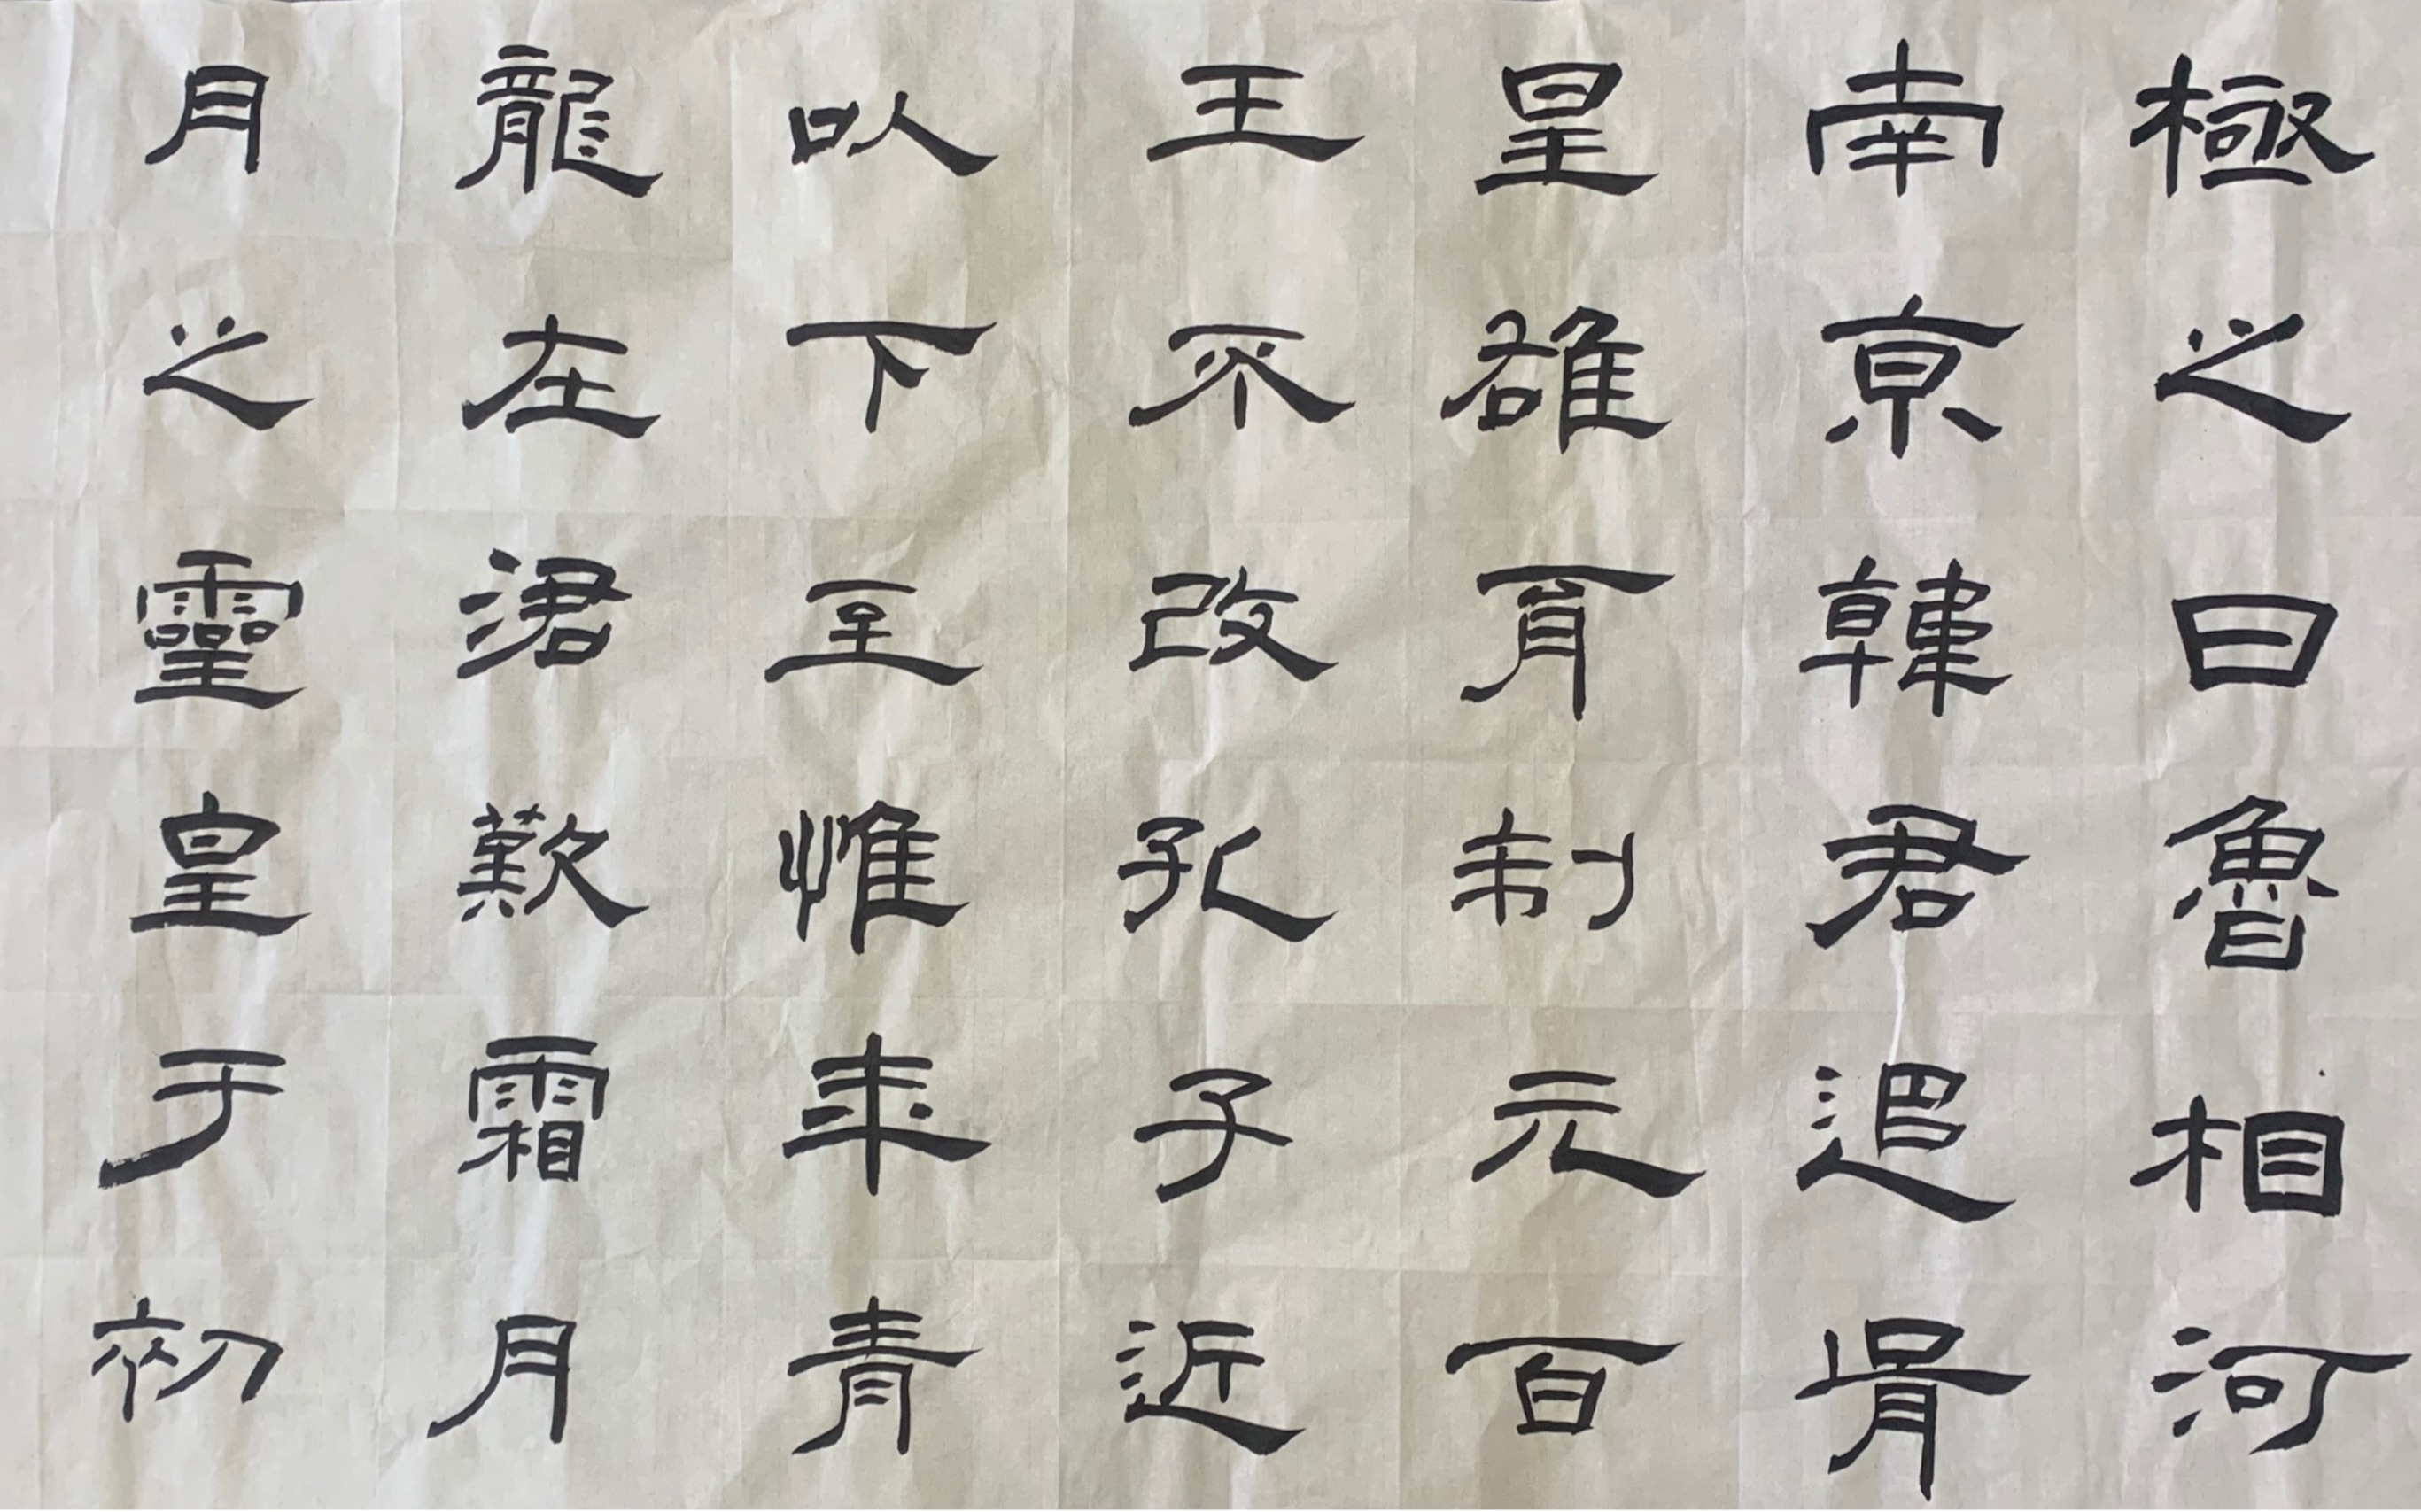 極之日魯相河
南京韓君追胥
皇雄育制元百
王不改孔子近
以下至惟年青
龍在涒歎霜月
月之靈皇于初